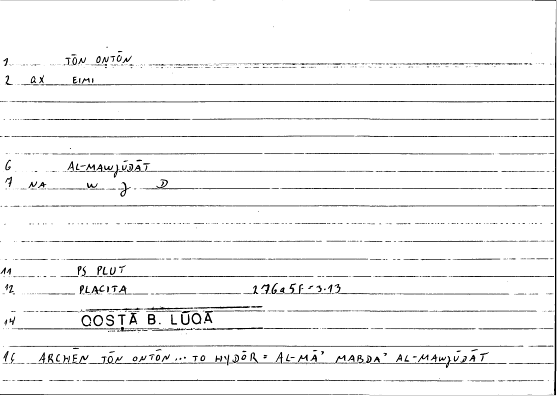 1 TŌN ONTŌN
2 ax EIMI
6 AL-MAWJŪDĀT
7 NA W J D
11 PS PLUT
12 PLACITA 276a5F-3.13
14 QOSṬĀ B. LŪQĀ
16 ARCHĒN TŌN ONTŌN... TO HYDŌR = AL-MĀ' MABDA' AL-MAWJŪDĀT